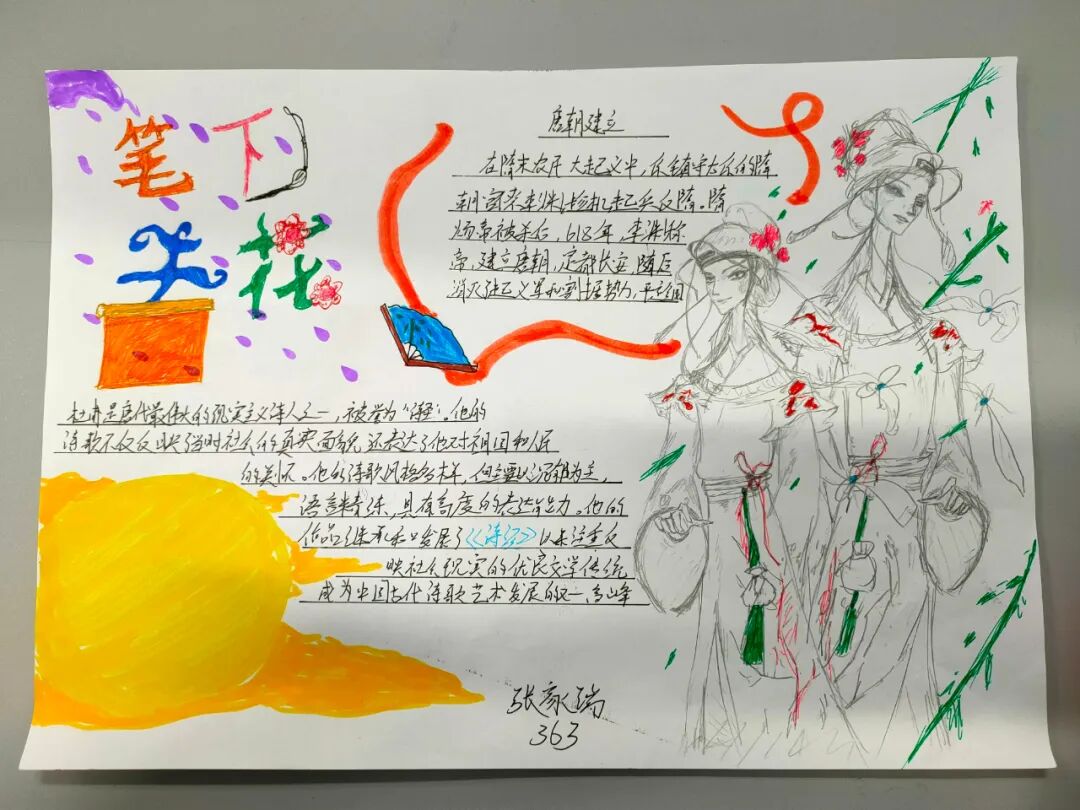 笔下
生花
唐朝建立
在隋末农民大起义中，乐镇守太原的隋
朝官老李渊趁机起兵反隋。隋
炀帝被杀后，618年，李渊称
帝，建立唐朝，定都长安，随后
消灭继起义军和割据势力，平定全国
杜甫是唐代最伟大的现实主义诗人之一，被誉为"诗圣"。他的
诗歌不仅反映当时社会的真实面貌，还表达了他对祖国和人民
的关怀。他的诗歌风格多样，但主要以沉郁为主，
语言精练，具有高度的表达能力。他的
作品继承和发展了《诗经》以来注重反
映社会现实的优良文学传统
成为中国古代诗歌艺术发展的又一高峰
张家瑞
363